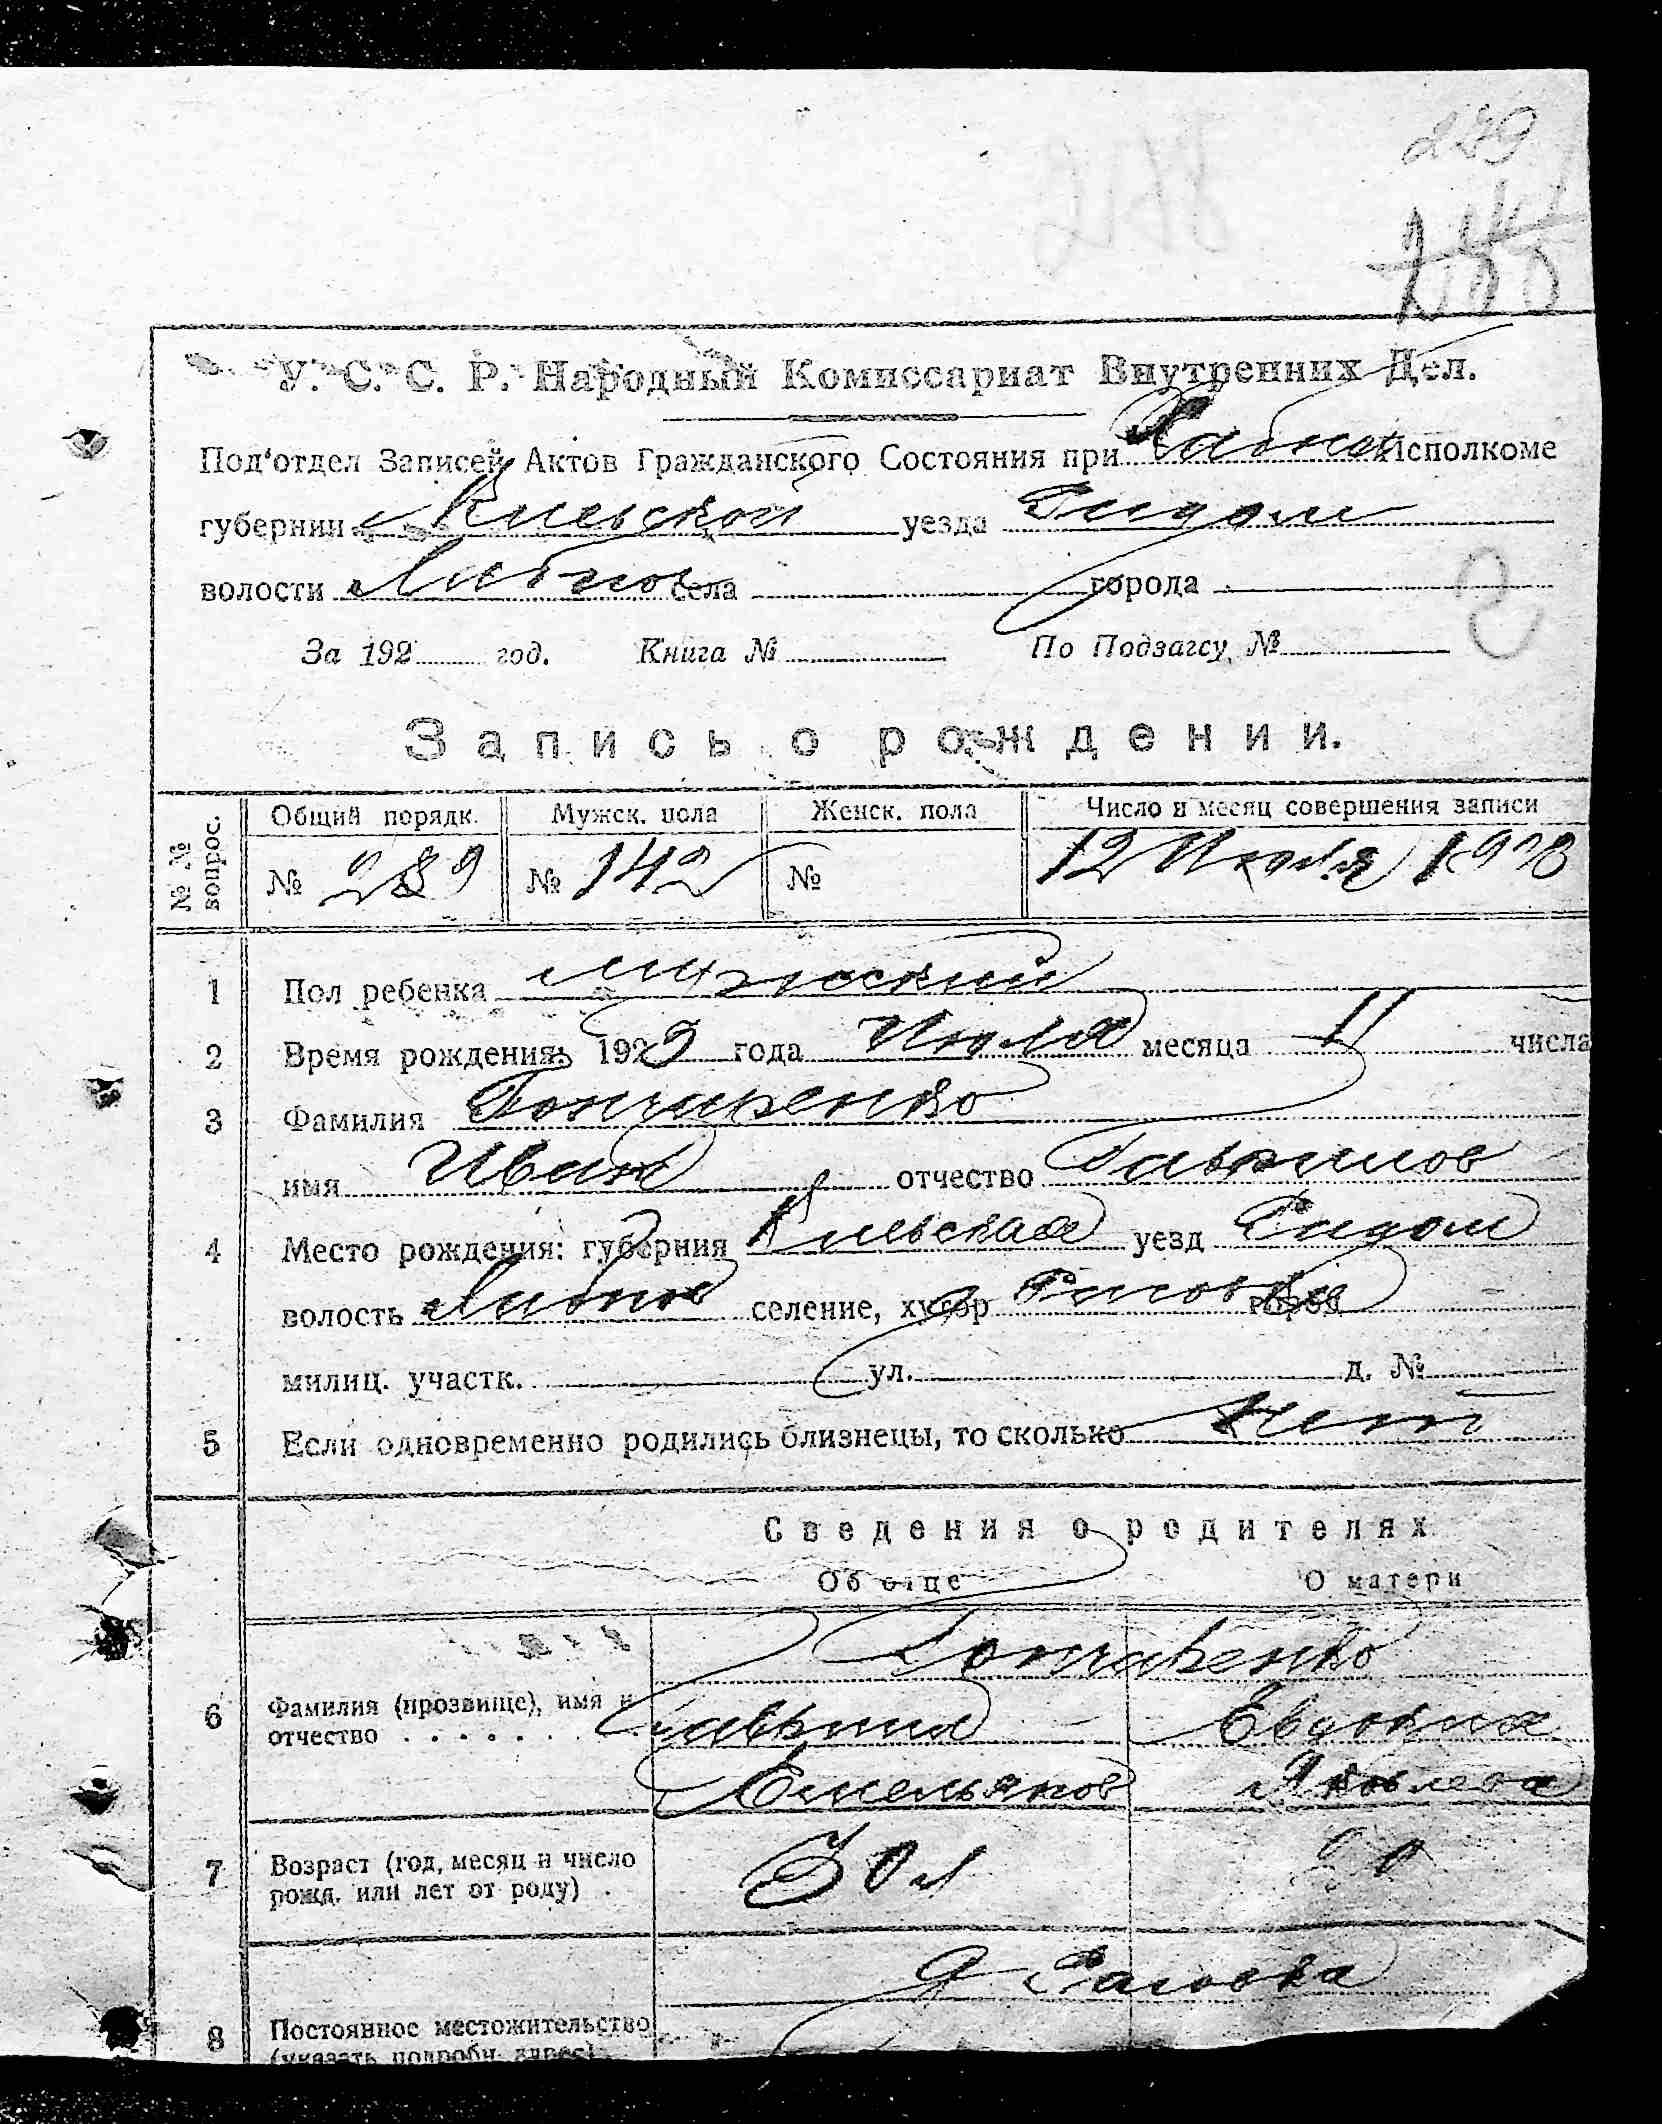 289
У. С. С. Р. Народный Комиссариат Внутренних Дел.
Под'отдел Записей Актов Гражданского Состояния при Исполкоме
губернии Киевской уезда
волости села города
За 192 год. Книга № По Подзагсу №
Запись о рождении.
№ № вопрос. Общий порядк. Мужск. пола Женск. пола Число и месяц совершения записи
№ 289 № 142 № 12 Июля 192
1 Пол ребенка мужской
2 Время рождения: 192 года Июля месяца 11 числа
3 Фамилия Гончаренко
имя Иван отчество Гаврилов
4 Место рождения: губерния Киевская уезд
волость селение, хутор город
милиц. участк. ул. д. №
5 Если одновременно родились близнецы, то сколько нет
Сведения о родителях
Об отце О матери
Гончаренко
6 Фамилия (прозвище), имя и Гавриил Евдокия
отчество Емельянов Яковлева
7 Возраст (год, месяц и число
рожд. или лет от роду) 30 л
8 Постоянное местожительство
(указать подробн. адрес)